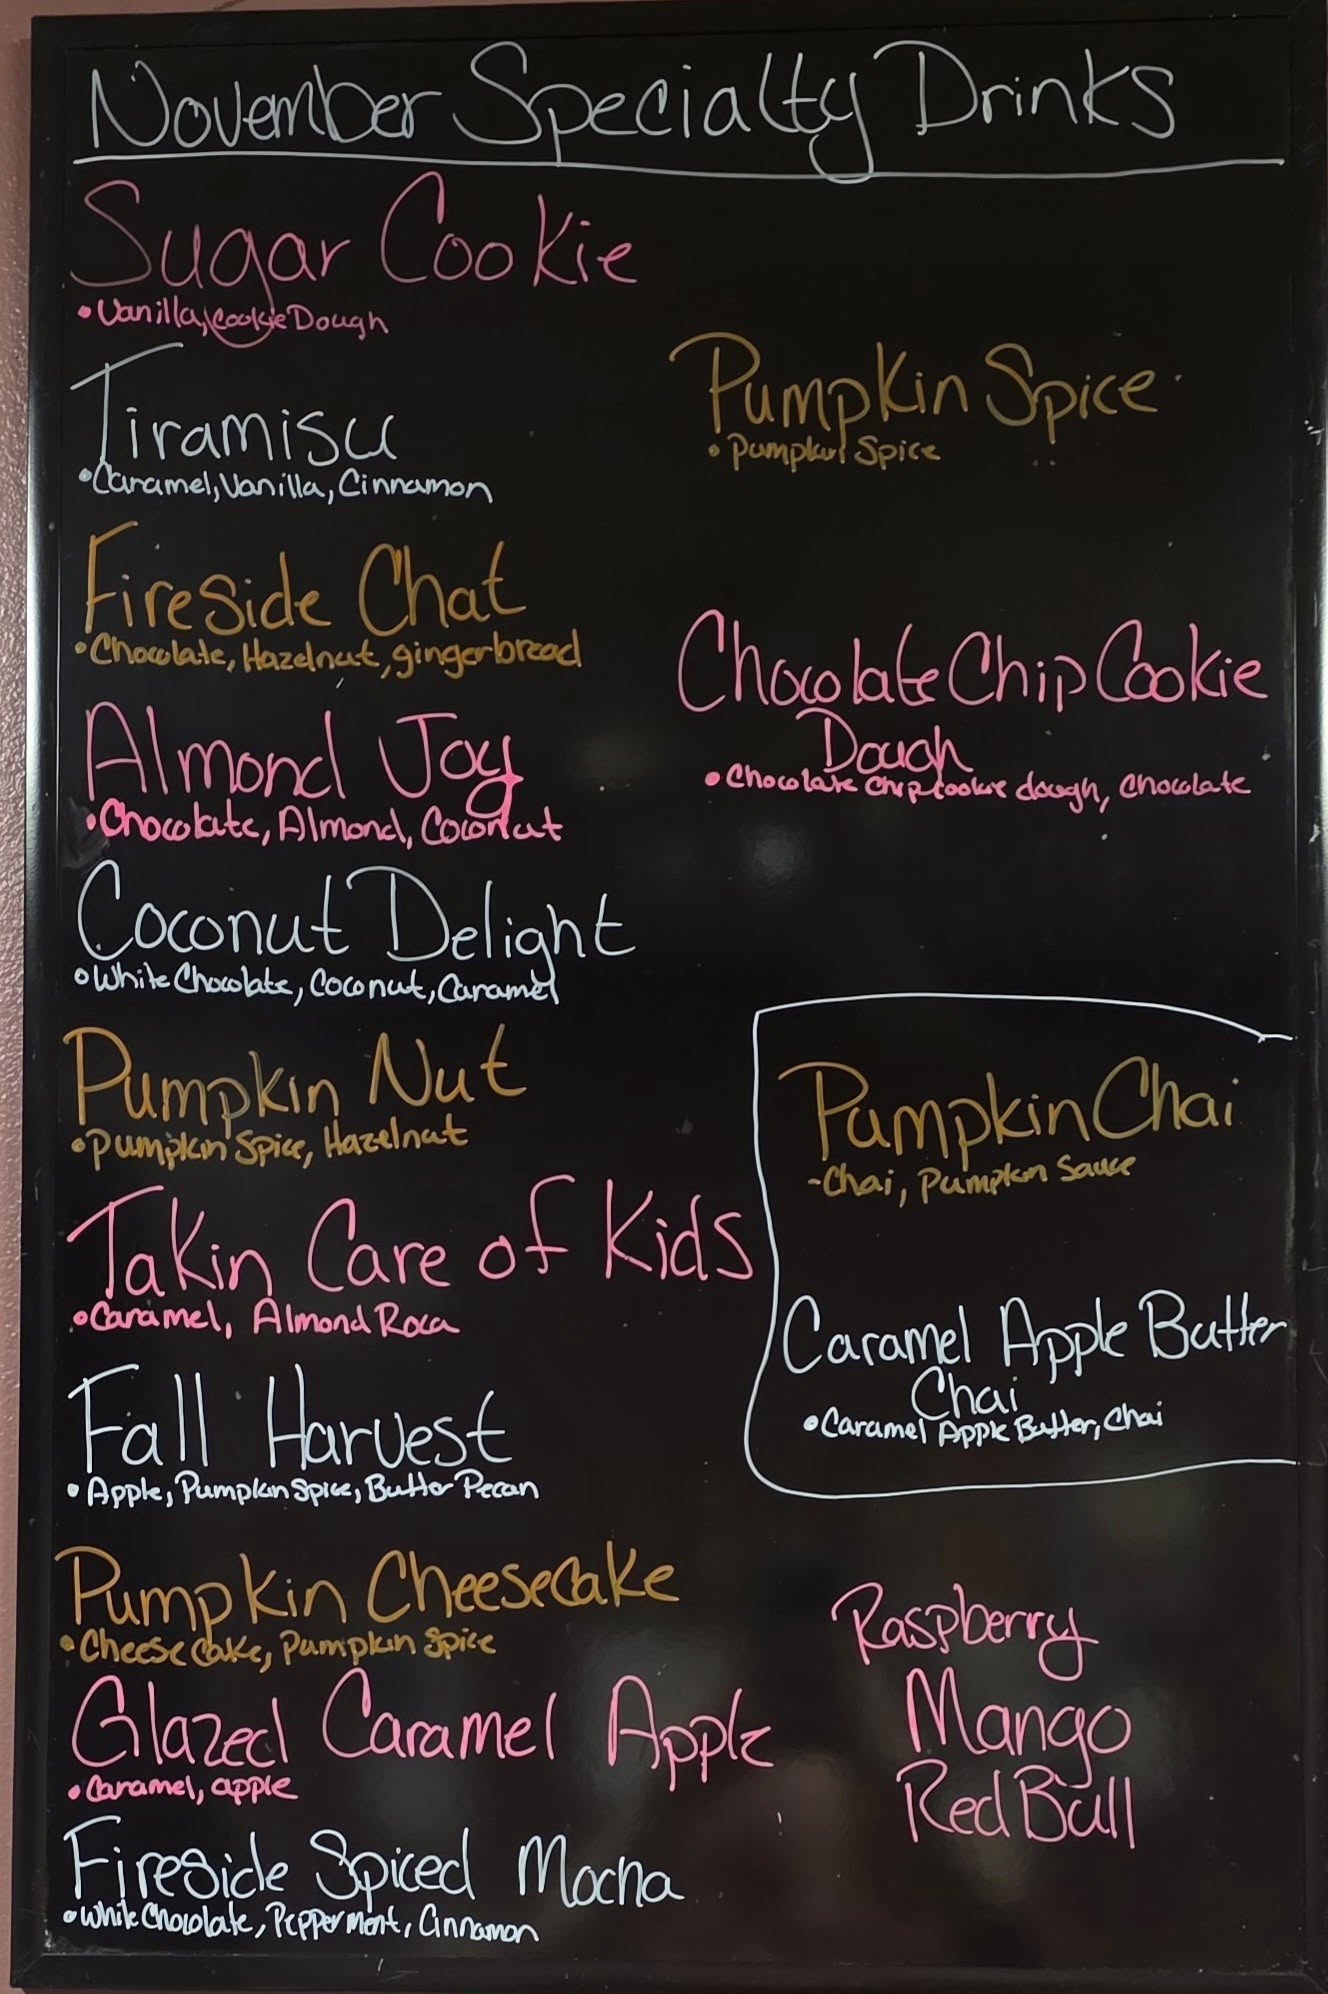 November Specialty Drinks
Sugar Cookie
•Vanilla, Cookie Dough
Tiramisu
•Caramel, Vanilla, Cinnamon
Fireside Chat
•Chocolate, Hazelnut, gingerbread
Almond Joy
•Chocolate, Almond, Coconut
Coconut Delight
•White Chocolate, Coconut, Caramel
Pumpkin Nut
•Pumpkin Spice, Hazelnut
Takin Care of Kids
•Caramel, Almond Roca
Fall Harvest
•Apple, Pumpkin Spice, Butter Pecan
Pumpkin Cheesecake
•Cheese Cake, Pumpkin Spice
Glazed Caramel Apple
•Caramel, apple
Fireside Spiced Mocha
•White Chocolate, Peppermint, Cinnamon
Pumpkin Spice
•Pumpkin Spice
Chocolate Chip Cookie
Dough
•Chocolate Chip Cookie dough, Chocolate
Pumpkin Chai
-Chai, Pumpkin Sauce
Caramel Apple Butter
Chai
•Caramel Apple Butter, Chai
Raspberry
Mango
Red Bull